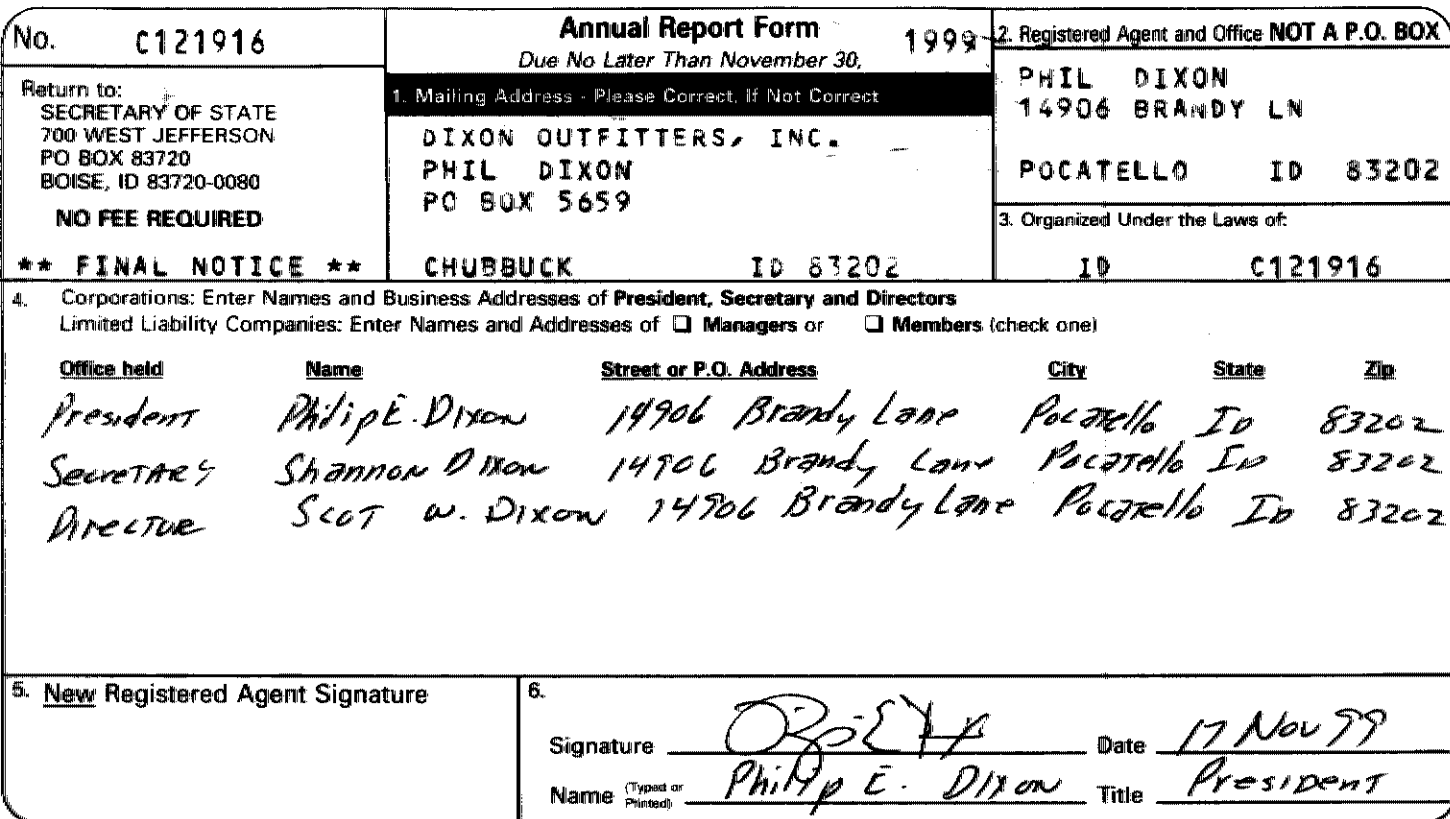 No. C121916
Return to:
SECRETARY OF STATE
700 WEST JEFFERSON
PO BOX 83720
BOISE, ID 83720-0080
NO FEE REQUIRED
** FINAL NOTICE **
Annual Report Form 1999
Due No Later Than November 30,
1. Mailing Address - Please Correct, If Not Correct
DIXON OUTFITTERS, INC.
PHIL DIXON
PO BOX 5659
CHUBBUCK ID 83202
2. Registered Agent and Office NOT A P.O. BOX
PHIL DIXON
14906 BRANDY LN
POCATELLO ID 83202
3. Organized Under the Laws of:
ID C121916
4. Corporations: Enter Names and Business Addresses of President, Secretary and Directors
Limited Liability Companies: Enter Names and Addresses of ❑ Managers or ❑ Members (check one)
Office held Name Street or P.O. Address City State Zip
President Philip E. Dixon 14906 Brandy Lane Pocatello ID 83202
Secretary Shannon Dixon 14906 Brandy Lane Pocatello ID 83202
Director Scot W. Dixon 14906 Brandy Lane Pocatello ID 83202
5. New Registered Agent Signature
6.
Signature Date 17 Nov 99
Name (Typed or Printed) Philip E. Dixon Title President